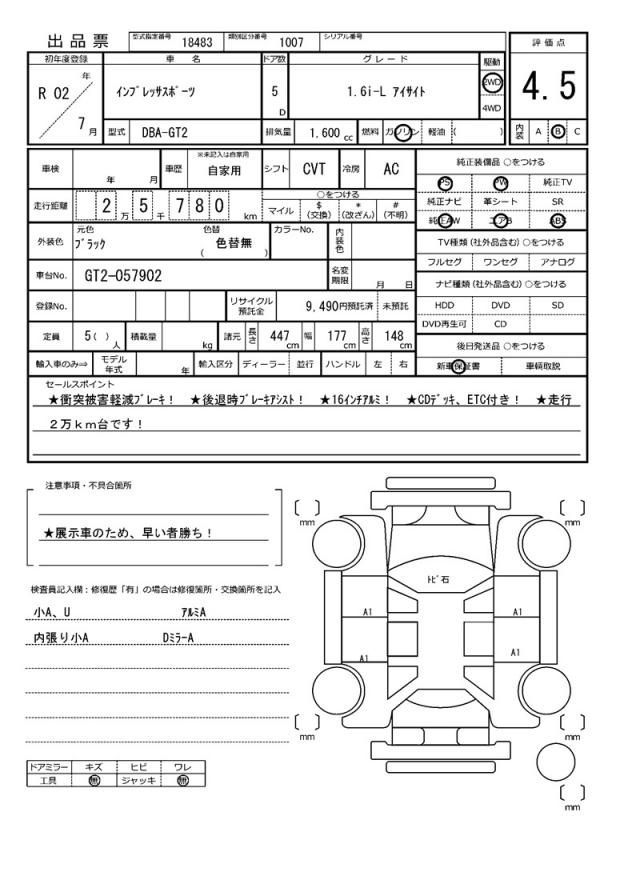 出品票 型式指定番号 18483 類別区分番号 1007 シリアル番号
評価点
4.5
内装 A B C
初年度登録 車名 ドア数 グレード 駆動
R 02 年 7 月 インプレッサスポーツ 5 D 1.6i-L アイサイト 2WD 4WD
型式 DBA-GT2 排気量 1.600 cc 燃料 ガソリン 軽油 ( )
車検 年 月 車歴 ※未記入は自家用 自家用 シフト CVT 冷房 AC
走行距離 2 万 5 千 7 8 0 km
○をつける
マイル $(交換) *(改ざん) #(不明)
外装色 元色 ブラック 色替 色替無 ( ) カラーNo. 内装色
車台No. GT2-057902 名変期限 月 日
登録No. リサイクル預託金 9,490円預託済 未預託
定員 5( ) 人 積載量 kg 諸元 長さ 447 cm 幅 177 cm 高さ 148 cm
輸入車のみ⇒ モデル年式 年 輸入区分 ディーラー 並行 ハンドル 左 右
純正装備品 ○をつける
PS PW 純正TV
純正ナビ 革シート SR
純正AW エアB ABS
TV種類(社外品含む)○をつける
フルセグ ワンセグ アナログ
ナビ種類(社外品含む)○をつける
HDD DVD SD
DVD再生可 CD
後日発送品 ○をつける
新車保証書 車輌取説
セールスポイント
★衝突被害軽減ブレーキ! ★後退時ブレーキアシスト! ★16インチアルミ! ★CDデッキ、ETC付き! ★走行
2万km台です!
注意事項・不具合箇所
★展示車のため、早い者勝ち!
検査員記入欄:修復歴「有」の場合は修復箇所・交換箇所を記入
小A、U アルミA
内張り小A DミラーA
ドアミラー キズ ヒビ ワレ
工具 無 ジャッキ 無
[ ] mm
[ ] mm
トビ石
A1
A1
A1
A1
[ ] mm
[ ] mm
[ ] mm